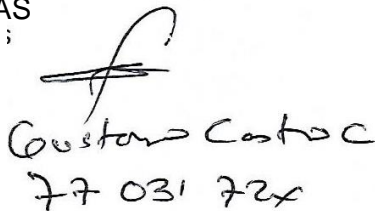 AS
s
Gustavo Castro C
77 031 72x